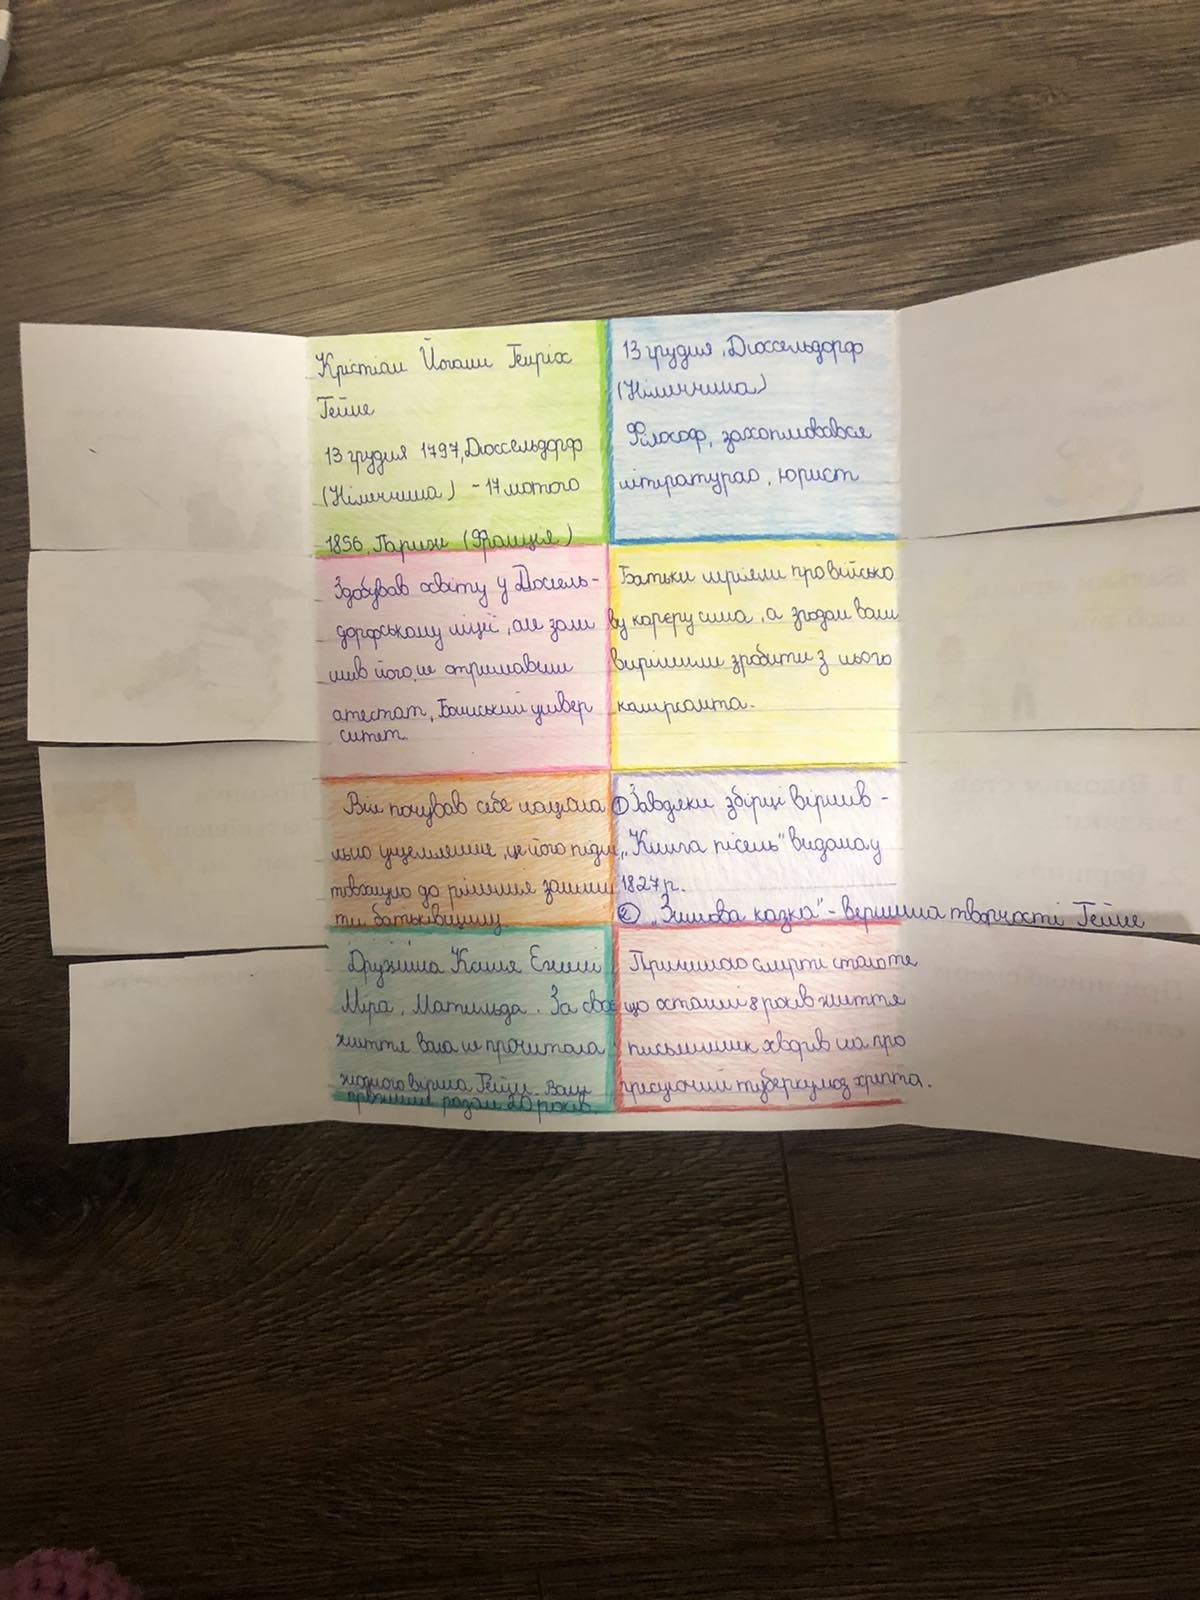 Крістіан Йоганн Генріх
Гейне
13 грудня 1797, Дюссельдорф
(Німеччина) - 17 лютого
1856, Париж (Франція)
13 грудня, Дюссельдорф
(Німеччина)
Філософ, захоплювався
літературою, юрист
Здобував освіту у Дюсель-
дорфському ліцеї, але зали
шив його, не отримавши
атестат, Бонський універ
ситет.
Батьки мріяли про військо
ву карєру сина, а згодом вони
вирішили зробити з нього
комерсанта.
Він почував себе націона
льно ущемленне, це його підш
товхнуло до рішення залиши
ти батьківщину.
① Завдяки збірці віршив -
„Книга пісень" видана у
1827 р.
② „Зимова казка" - вершина творчості Гейне
Дружина
Міра, Матильда. За своє
життя вона не прочитала
жодного вірша Гейне. Вони
прожили разом 20 років.
Причиною смерті стало те
що останні 8 років життя
письменник хворів на про
гресуючий туберкульоз хребта.
1. Відомим став
2. Верши